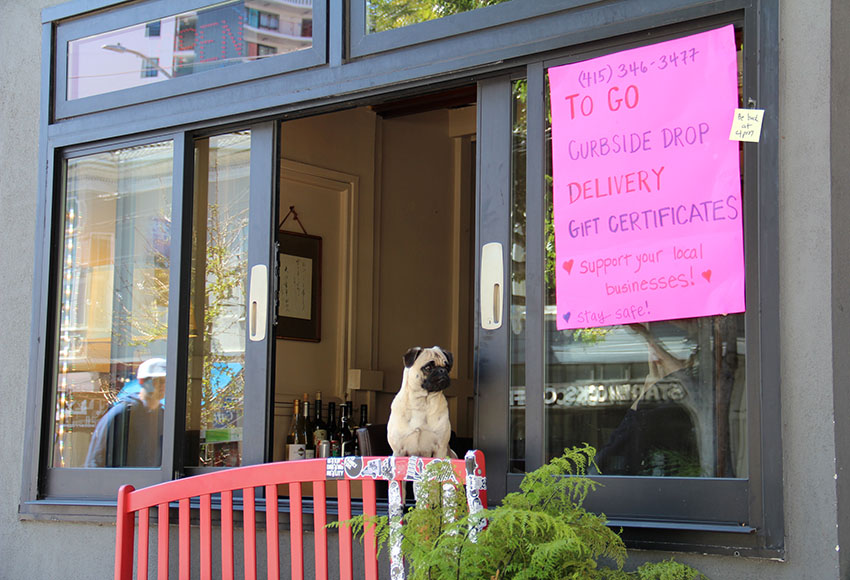 OPEN
(415) 346-3477
TO GO
CURBSIDE DROP
DELIVERY
GIFT CERTIFICATES
support your local
businesses!
stay safe!
Be back
at
4pm